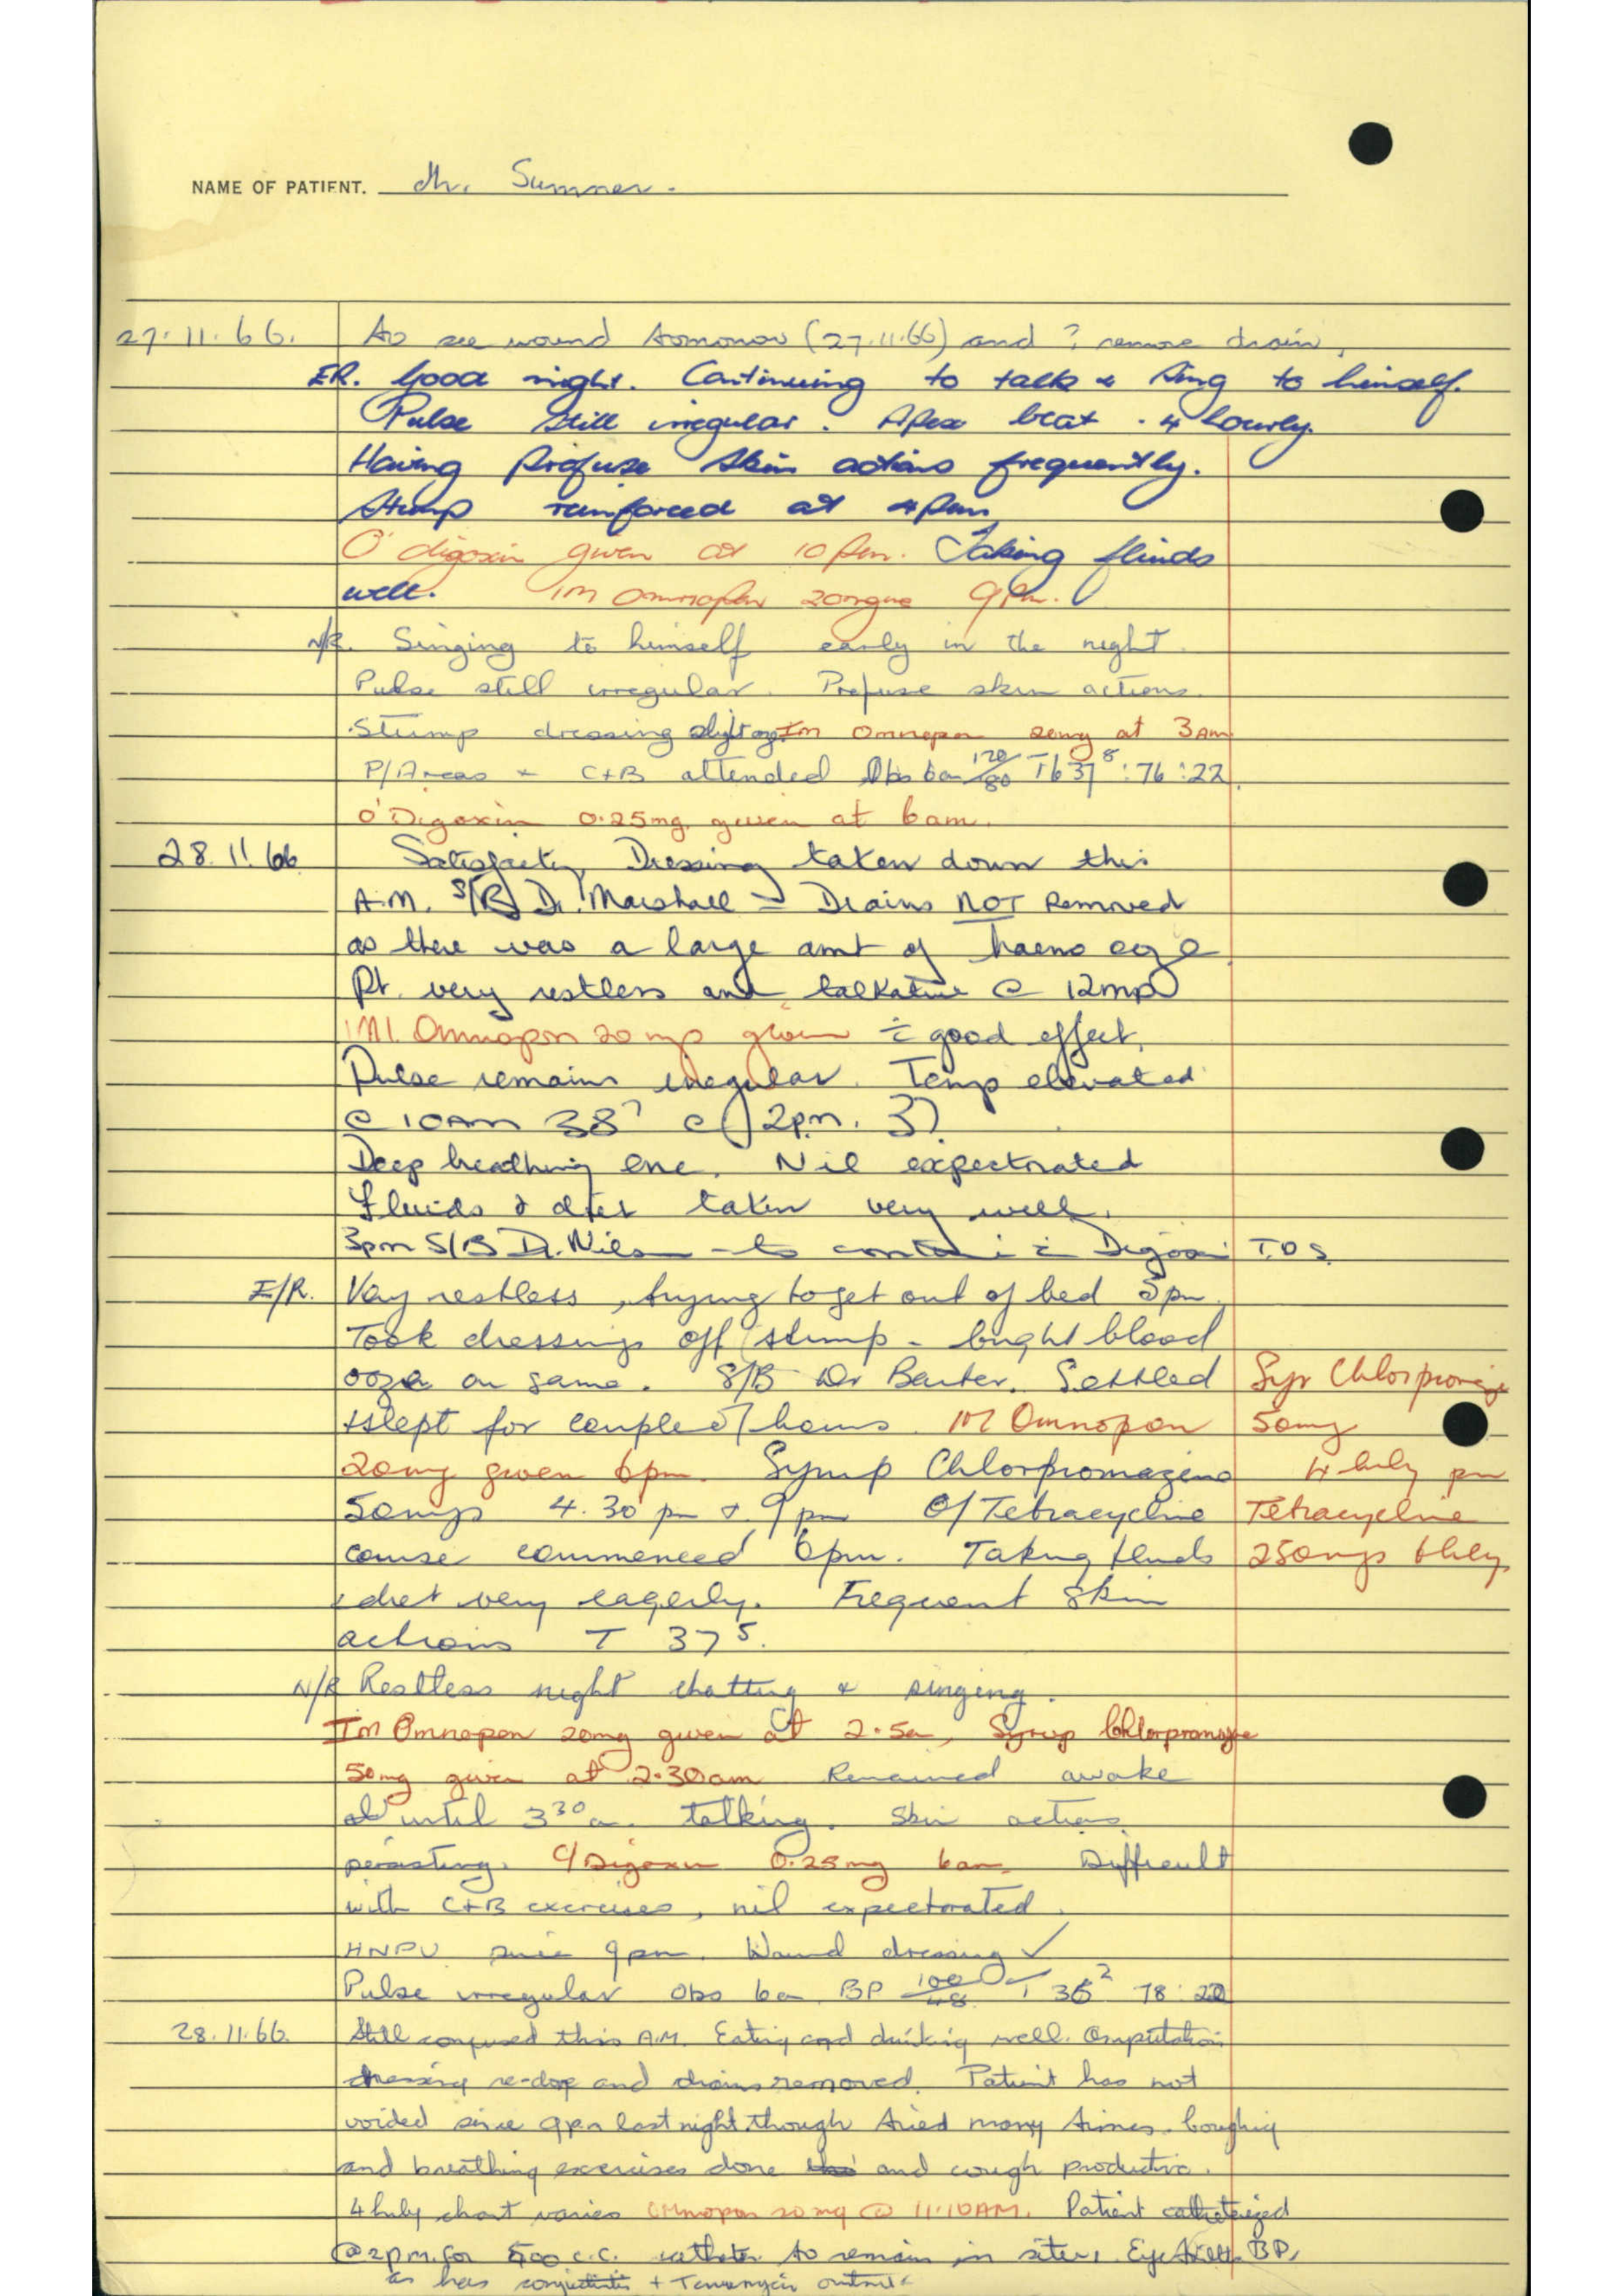 NAME OF PATIENT. Mr. Sumner.
27.11.66. To see wound tomorrow (27.11.66) and ? remove drain,
ER. Good night. Continuing to talk & sing to himself.
Pulse still irregular. Apex beat . 4 hourly.
Having profuse skin actions frequently.
Stump reinforced at 4pm
O' digoxin given at 10pm. Taking fluids
well. IM Omnopon 20mgm 9pm.
N/R. Singing to himself early in the night.
Pulse still irregular. Profuse skin actions.
Stump dressing slight ooze Im Omnopon 20mg at 3am
P/Areas + C+B attended Obs 6am 120/80 T 37⁸ : 76 : 22.
O' Digoxin 0.25mg. given at 6am.
28.11.66 Satisfactory. Dressing taken down this
A.M. S/B Dr. Marshall - Drains NOT Removed
as there was a large amt of haemo ooze
Pt. very restless and talkative @ 12md
IMI. Omnopon 20mg given c̄ good effect.
Pulse remains irregular. Temp elevated
@ 10AM 38⁷ @ 2p.m. 37
Deep breathing enc. Nil expectorated
fluids & diet taken very well.
3pm S/B Dr. - to continue c̄ Digoxin T.D.S.
E/R. Very restless, trying to get out of bed 3pm.
Took dressings off stump - bright blood
ooze on same. S/B Dr Barter. Settled Syr Chlorpromazine
+ slept for couple of hours. IM Omnopon 50mg
20mg given 6pm. Syrup Chlorpromazine 4 hrly prn
50mgs 4.30 pm & 9pm O/Tetracycline Tetracycline
course commenced 6pm. Taking fluids 250mgs 6hrly
& diet very eagerly. Frequent skin
actions T 37⁵.
N/R Restless night chatting & singing.
Im Omnopon 20mg given at 2.5am, Syrup Chlorpromazine
50mg given at 2.30am Remained awake
until 3³⁰am talking. Skin actions
persisting. O/Digoxin 0.25mg 6am. Difficult
with C+B exercises, nil expectorated.
HNPU since 9pm. Wound dressing ✓
Pulse irregular Obs 6am BP 100/48 T 36² 78 : 20
28.11.66. Still confused this A.M. Eating and drinking well. Amputation
dressing re-done and drains removed. Patient has not
voided since 9pm last night though tried many times. Coughing
and breathing exercises done and cough productive.
4 hrly chart varies Omnopon 20mg @ 11.10AM. Patient catheterized
@ 2pm. for 500 c.c. catheter to remain in situ. Eye BP,
as has conjunctivitis + Terramycin